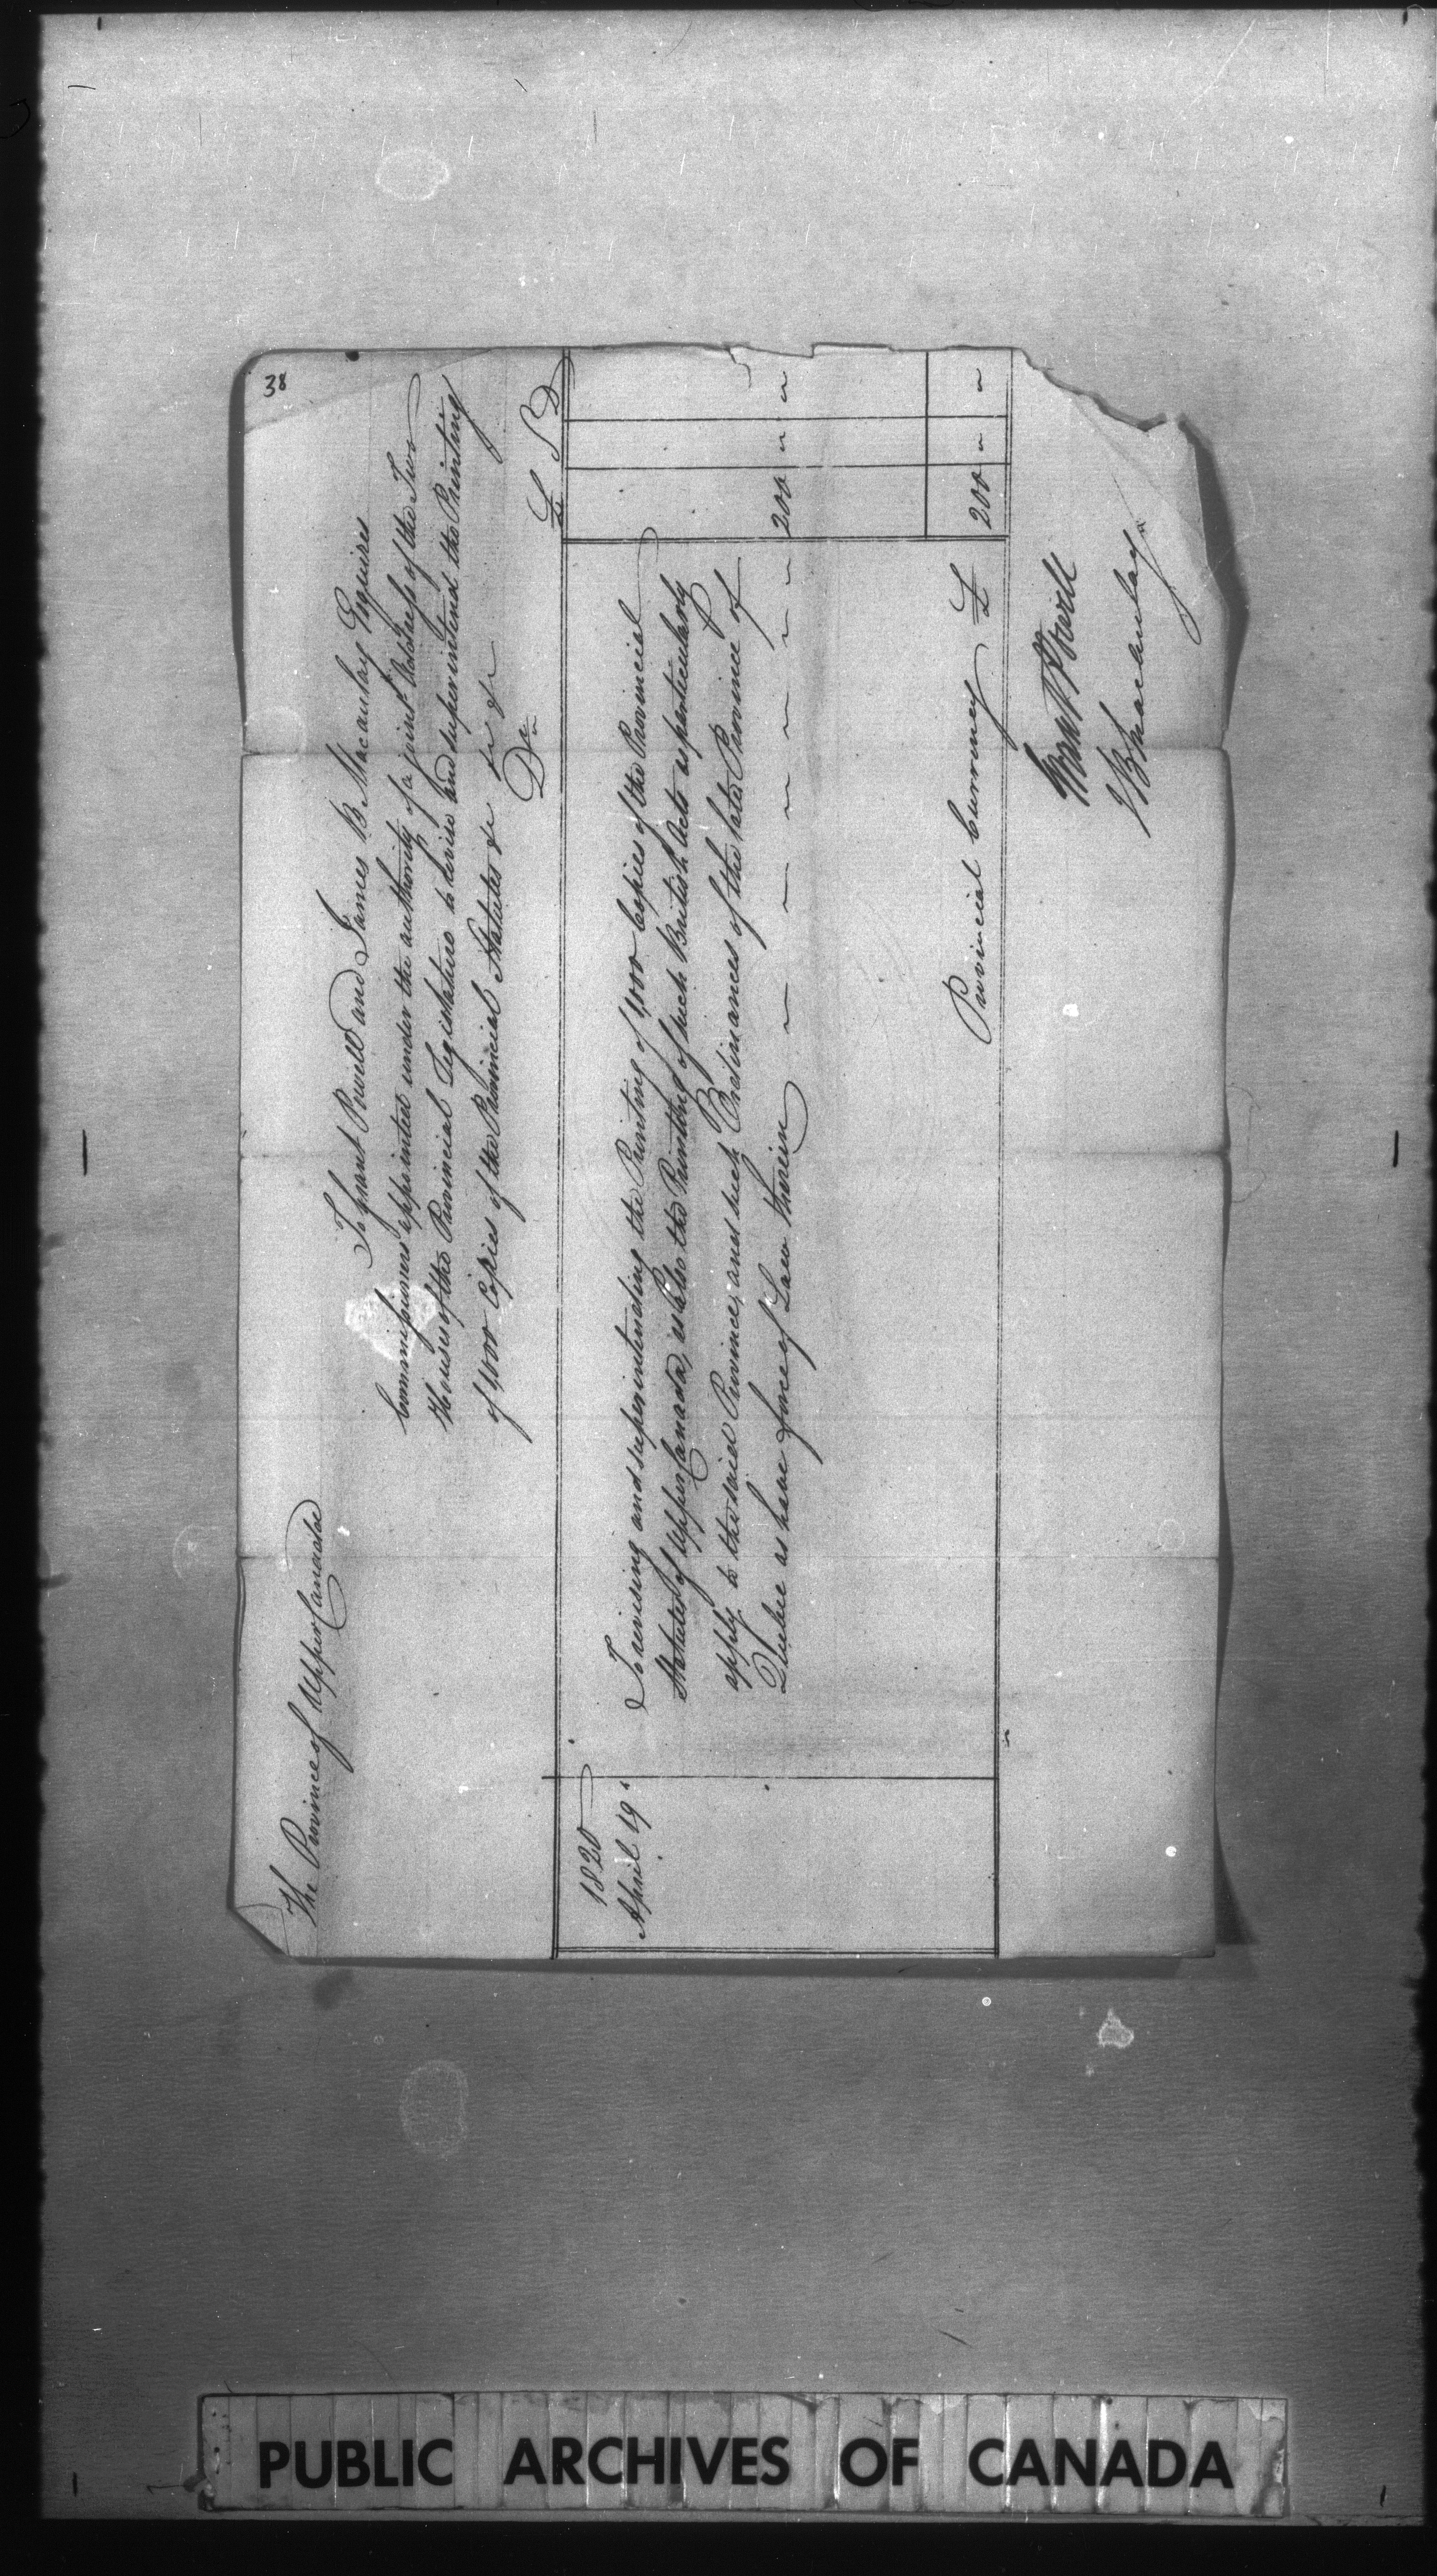 38
The Province of Upper Canada
To Grant Powell and James B. Macaulay Esquires
Commissioners appointed under the authority of a joint Address of the Two
Houses of the Provincial Legislature to revise and superintend the Printing
of 1,000 Copies of the Provincial Statutes &c &c &c
Dr
£ S D
1820
April 19th
To revising and superintending the Printing of 1,000 Copies of the Provincial
Statutes of Upper Canada, as also the Printing of such British Acts as particularly
apply to the said Province, and such Ordinances of the late Province of
Quebec as have force of Law therein 200 " "
Provincial Currency £ 200 " "
Grant Powell
J B Macaulay
PUBLIC ARCHIVES OF CANADA